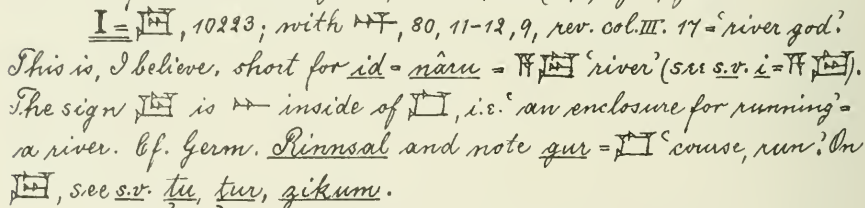 I = 𒇉, 10223; with 𒀭, 80, 11-12, 9, rev. col. III. 17 = 'river god'.
This is, I believe, short for id = nâru = 𒀀𒇉 'river' (see s.v. i = 𒀀𒇉).
The sign 𒇉 is 𒄬 inside of 𒆸, i.e. 'an enclosure for running' =
a river. Cf. Germ. Rinnsal and note gur = 𒆸 'course, run'. On
𒇉, see s.v. tu, tur, zikum.